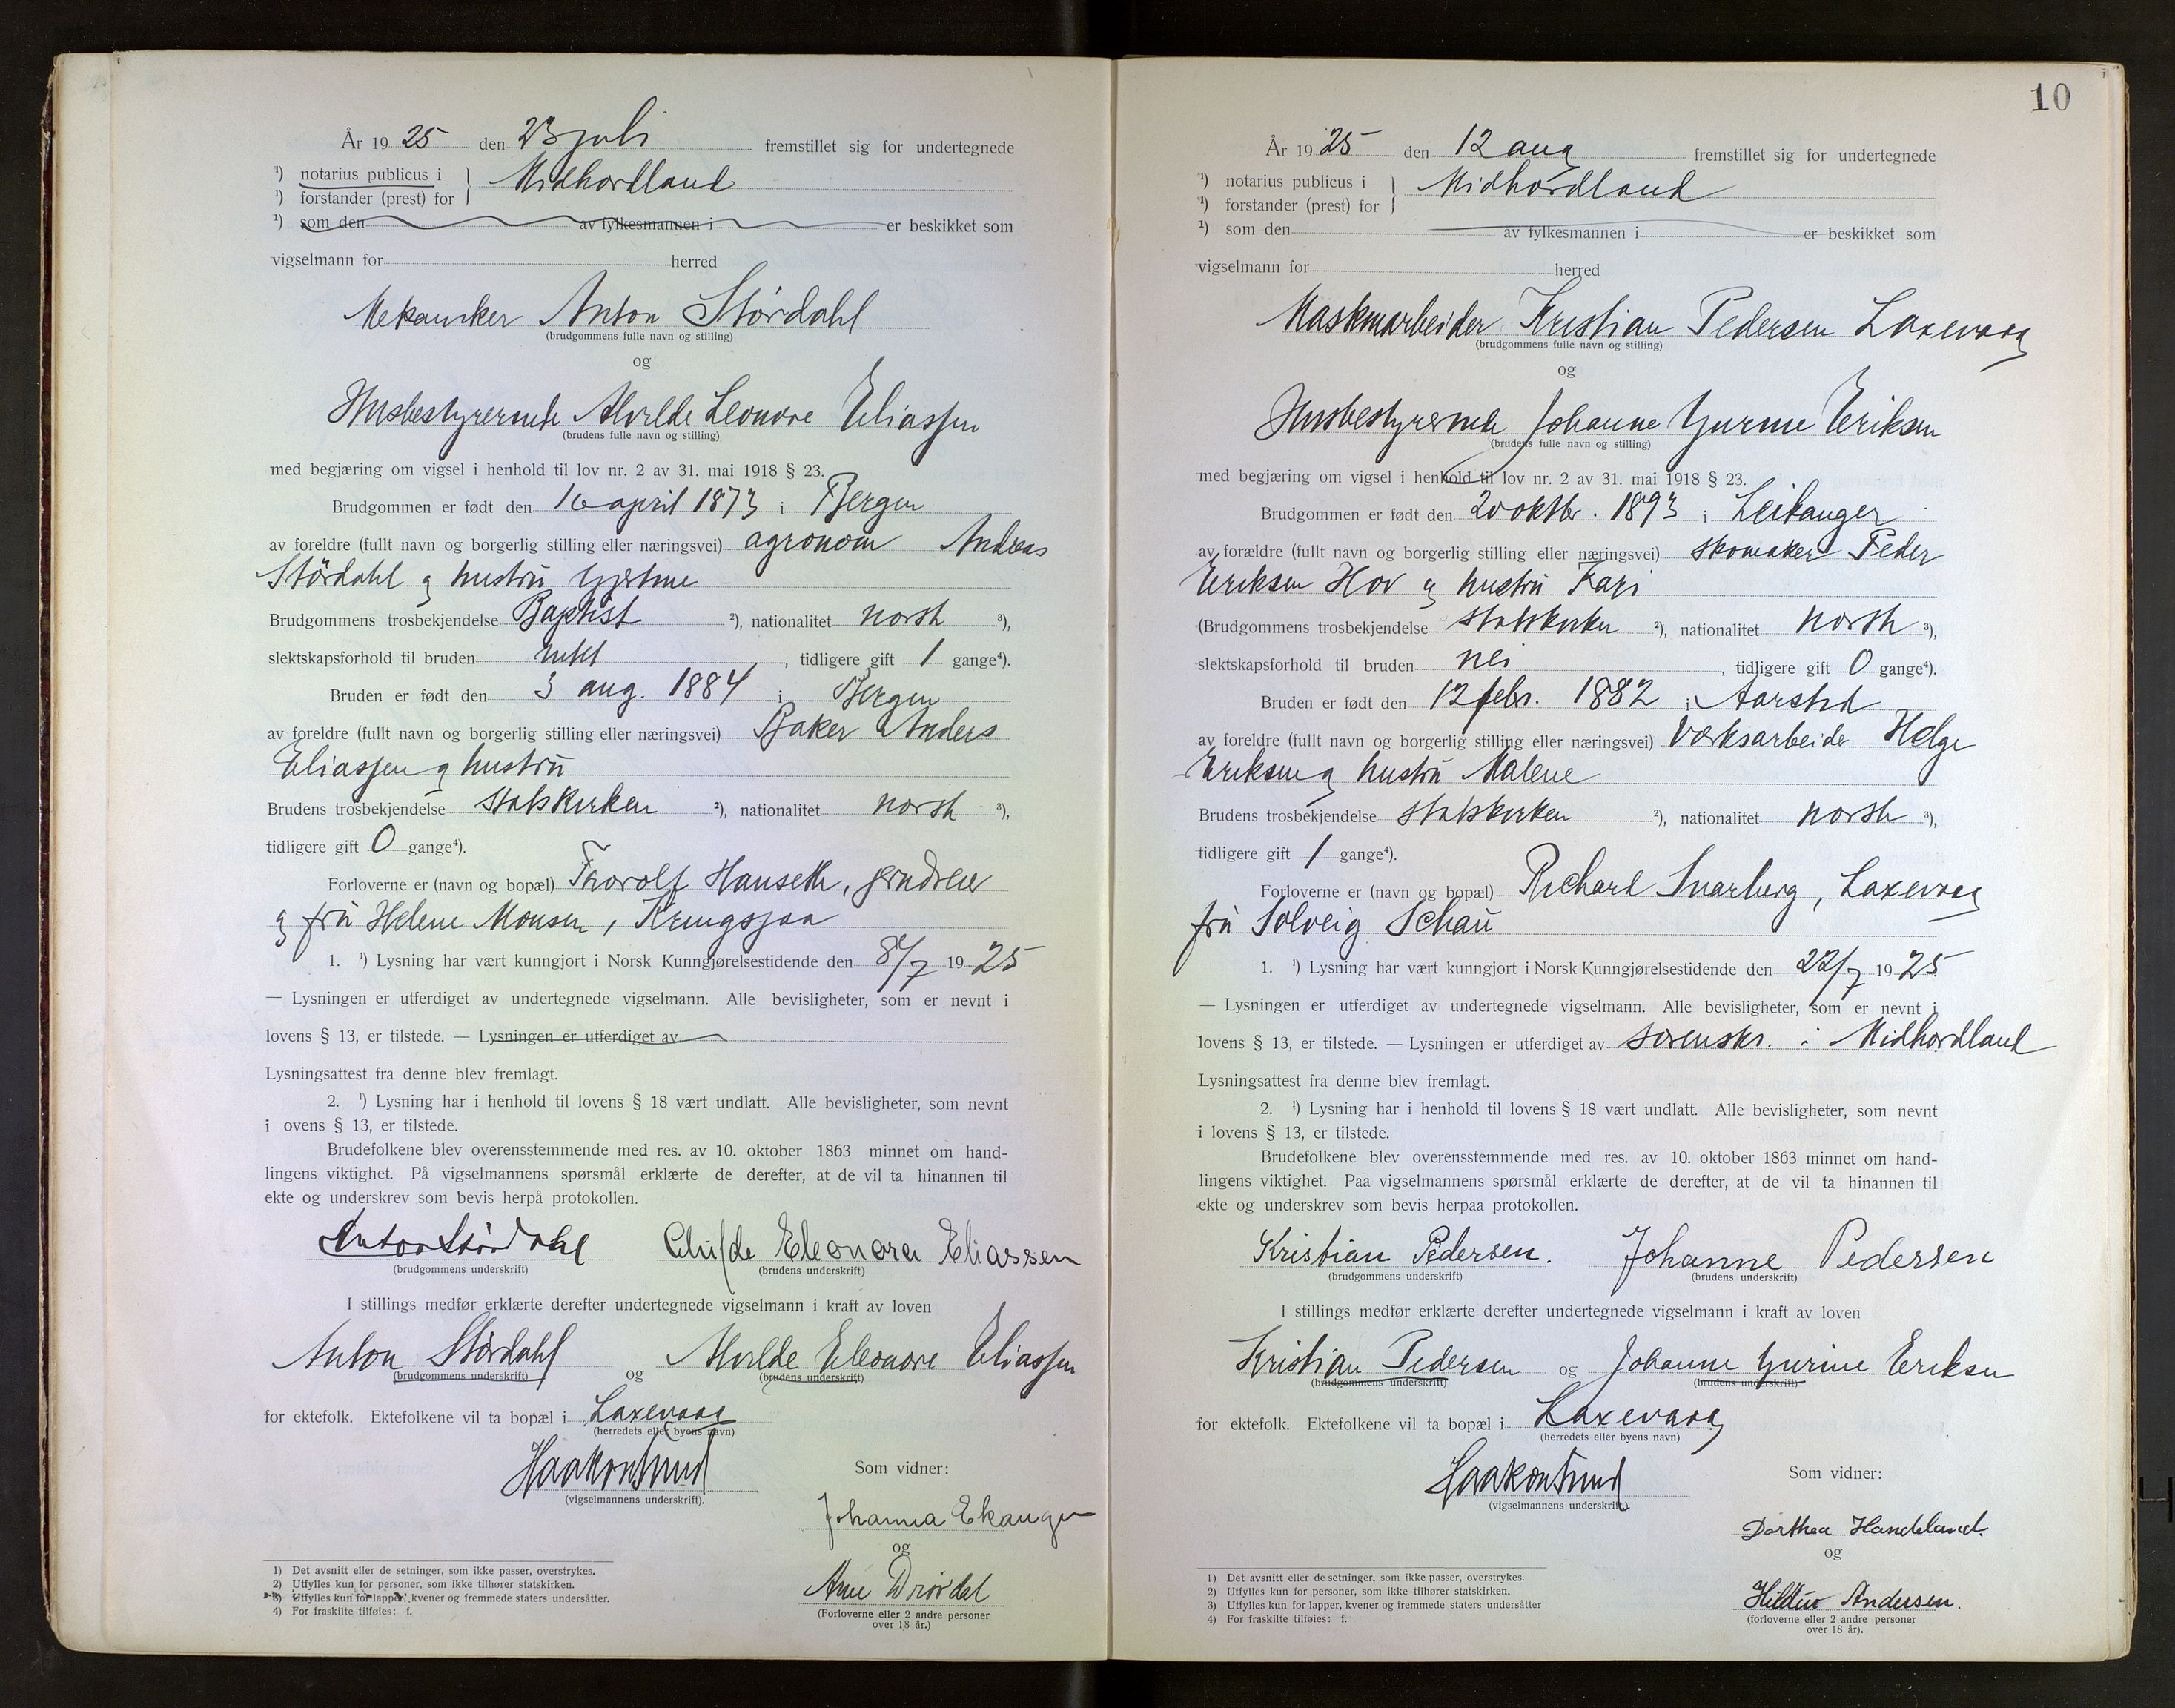 År 19 25 den 23 juli fremstillet sig for undertegnede
¹) notarius publicus i } Midhordland
¹) forstander (prest) for
¹) som den av fylkesmannen i er beskikket som
vigselmann for herred
Mekaniker Anton Størdahl
(brudgommens fulle navn og stilling)
og
Husbestyrerinde Alvilde Leonore Eliassen
(brudens fulle navn og stilling)
med begjæring om vigsel i henhold til lov nr. 2 av 31. mai 1918 § 23.
Brudgommen er født den 16 april 1873 i Bergen
av foreldre (fullt navn og borgerlig stilling eller næringsvei) agronom Andreas
Størdahl og hustru
Brudgommens trosbekjendelse Baptist ²), nationalitet norsk ³),
slektskapsforhold til bruden intet , tidligere gift 1 gange⁴).
Bruden er født den 3 aug. 1884 i Bergen
av foreldre (fullt navn og borgerlig stilling eller næringsvei) Baker Anders
Eliassen og hustru
Brudens trosbekjendelse statskirken ²), nationalitet norsk ³),
tidligere gift 0 gange⁴).
Forloverne er (navn og bopæl) Thorolf Hanseth,
og fru Helene Monsen, Kringsjaa
1. ¹) Lysning har vært kunngjort i Norsk Kunngjørelsestidende den 8/7 19 25
— Lysningen er utferdiget av undertegnede vigselmann. Alle bevisligheter, som er nevnt i
lovens § 13, er tilstede. — Lysningen er utferdiget av
Lysningsattest fra denne blev fremlagt.
2. ¹) Lysning har i henhold til lovens § 18 vært undlatt. Alle bevisligheter, som nevnt
i ovens § 13, er tilstede.
Brudefolkene blev overensstemmende med res. av 10. oktober 1863 minnet om hand-
lingens viktighet. På vigselmannens spørsmål erklærte de derefter, at de vil ta hinannen til
ekte og underskrev som bevis herpå protokollen.
Anton Størdahl Alvilde Eleonora Eliassen
(brudgommens underskrift) (brudens underskrift)
I stillings medfør erklærte derefter undertegnede vigselmann i kraft av loven
Anton Størdahl og Alvilde Eleonore Eliassen
(brudgommens underskrift) (brudens underskrift)
for ektefolk. Ektefolkene vil ta bopæl i Laxevaag
(herredets eller byens navn)
Haakon Lund
(vigselmannens underskrift).
Som vidner:
Johanna Ekanger
og
Arne Drøvdal
(Forloverne eller 2 andre personer
over 18 år.)
1) Det avsnitt eller de setninger, som ikke passer, overstrykes.
2) Utfylles kun for personer, som ikke tilhører statskirken.
3) Utfylles kun for lapper, kvener og fremmede staters undersåtter.
4) For fraskilte tilføies: f.
10
År 19 25 den 12 aug fremstillet sig for undertegnede
¹) notarius publicus i } Midhordland
¹) forstander (prest) for
¹) som den av fylkesmannen i er beskikket som
vigselmann for herred
Maskinarbeider Kristian Pedersen Laxevaag
(brudgommens fulle navn og stilling)
og
Husbestyrerinde Johanne Gurine Eriksen
(brudens fulle navn og stilling)
med begjæring om vigsel i henhold til lov nr. 2 av 31. mai 1918 § 23.
Brudgommen er født den 20 oktbr. 1893 i Leikanger
av forældre (fullt navn og borgerlig stilling eller næringsvei) skomaker Peder
Eriksen Hov og hustru Kari
(Brudgommens trosbekjendelse statskirken ²), nationalitet norsk ³),
slektskapsforhold til bruden nei , tidligere gift 0 gange⁴).
Bruden er født den 12 febr. 1882 i Aarstad
av foreldre (fullt navn og borgerlig stilling eller næringsvei) Værksarbeider Helge
Eriksen og hustru Malene
Brudens trosbekjendelse statskirken ²), nationalitet norsk ³),
tidligere gift 1 gange⁴).
Forloverne er (navn og bopæl) Richard Snarberg, Laxevaag
fru Solveig Schau
1. ¹) Lysning har vært kunngjort i Norsk Kunngjørelsestidende den 22/7 19 25
— Lysningen er utferdiget av undertegnede vigselmann. Alle bevisligheter, som er nevnt i
lovens § 13, er tilstede. — Lysningen er utferdiget av sorenskr. i Midhordland
Lysningsattest fra denne blev fremlagt.
2. ¹) Lysning har i henhold til lovens § 18 vært undlatt. Alle bevisligheter, som nevnt
i lovens § 13, er tilstede.
Brudefolkene blev overensstemmende med res. av 10. oktober 1863 minnet om hand-
lingens viktighet. Paa vigselmannens spørsmål erklærte de derefter, at de vil ta hinannen til
ekte og underskrev som bevis herpaa protokollen.
Kristian Pedersen. Johanne Pedersen
(brudgommens underskrift) (brudens underskrift)
I stillings medfør erklærte derefter undertegnede vigselmann i kraft av loven
Kristian Pedersen og Johanne Gurine Eriksen
(brudgommens underskrift) (brudens underskrift)
for ektefolk. Ektefolkene vil ta bopæl i Laxevaag
(herredets eller byens navn)
Haakon Lund
(vigselmannens underskrift.)
Som vidner:
Dorthea Handeland.
og
Hildur Andersen.
(forloverne eller 2 andre personer
over 18 år).
1) Det avsnitt eller de setninger, som ikke passer, overstrykes.
2) Utfylles kun for personer, som ikke tilhører statskirken.
3) Utfylles kun for lapper, kvener og fremmede staters undersåtter
4) For fraskilte tilføies: f.